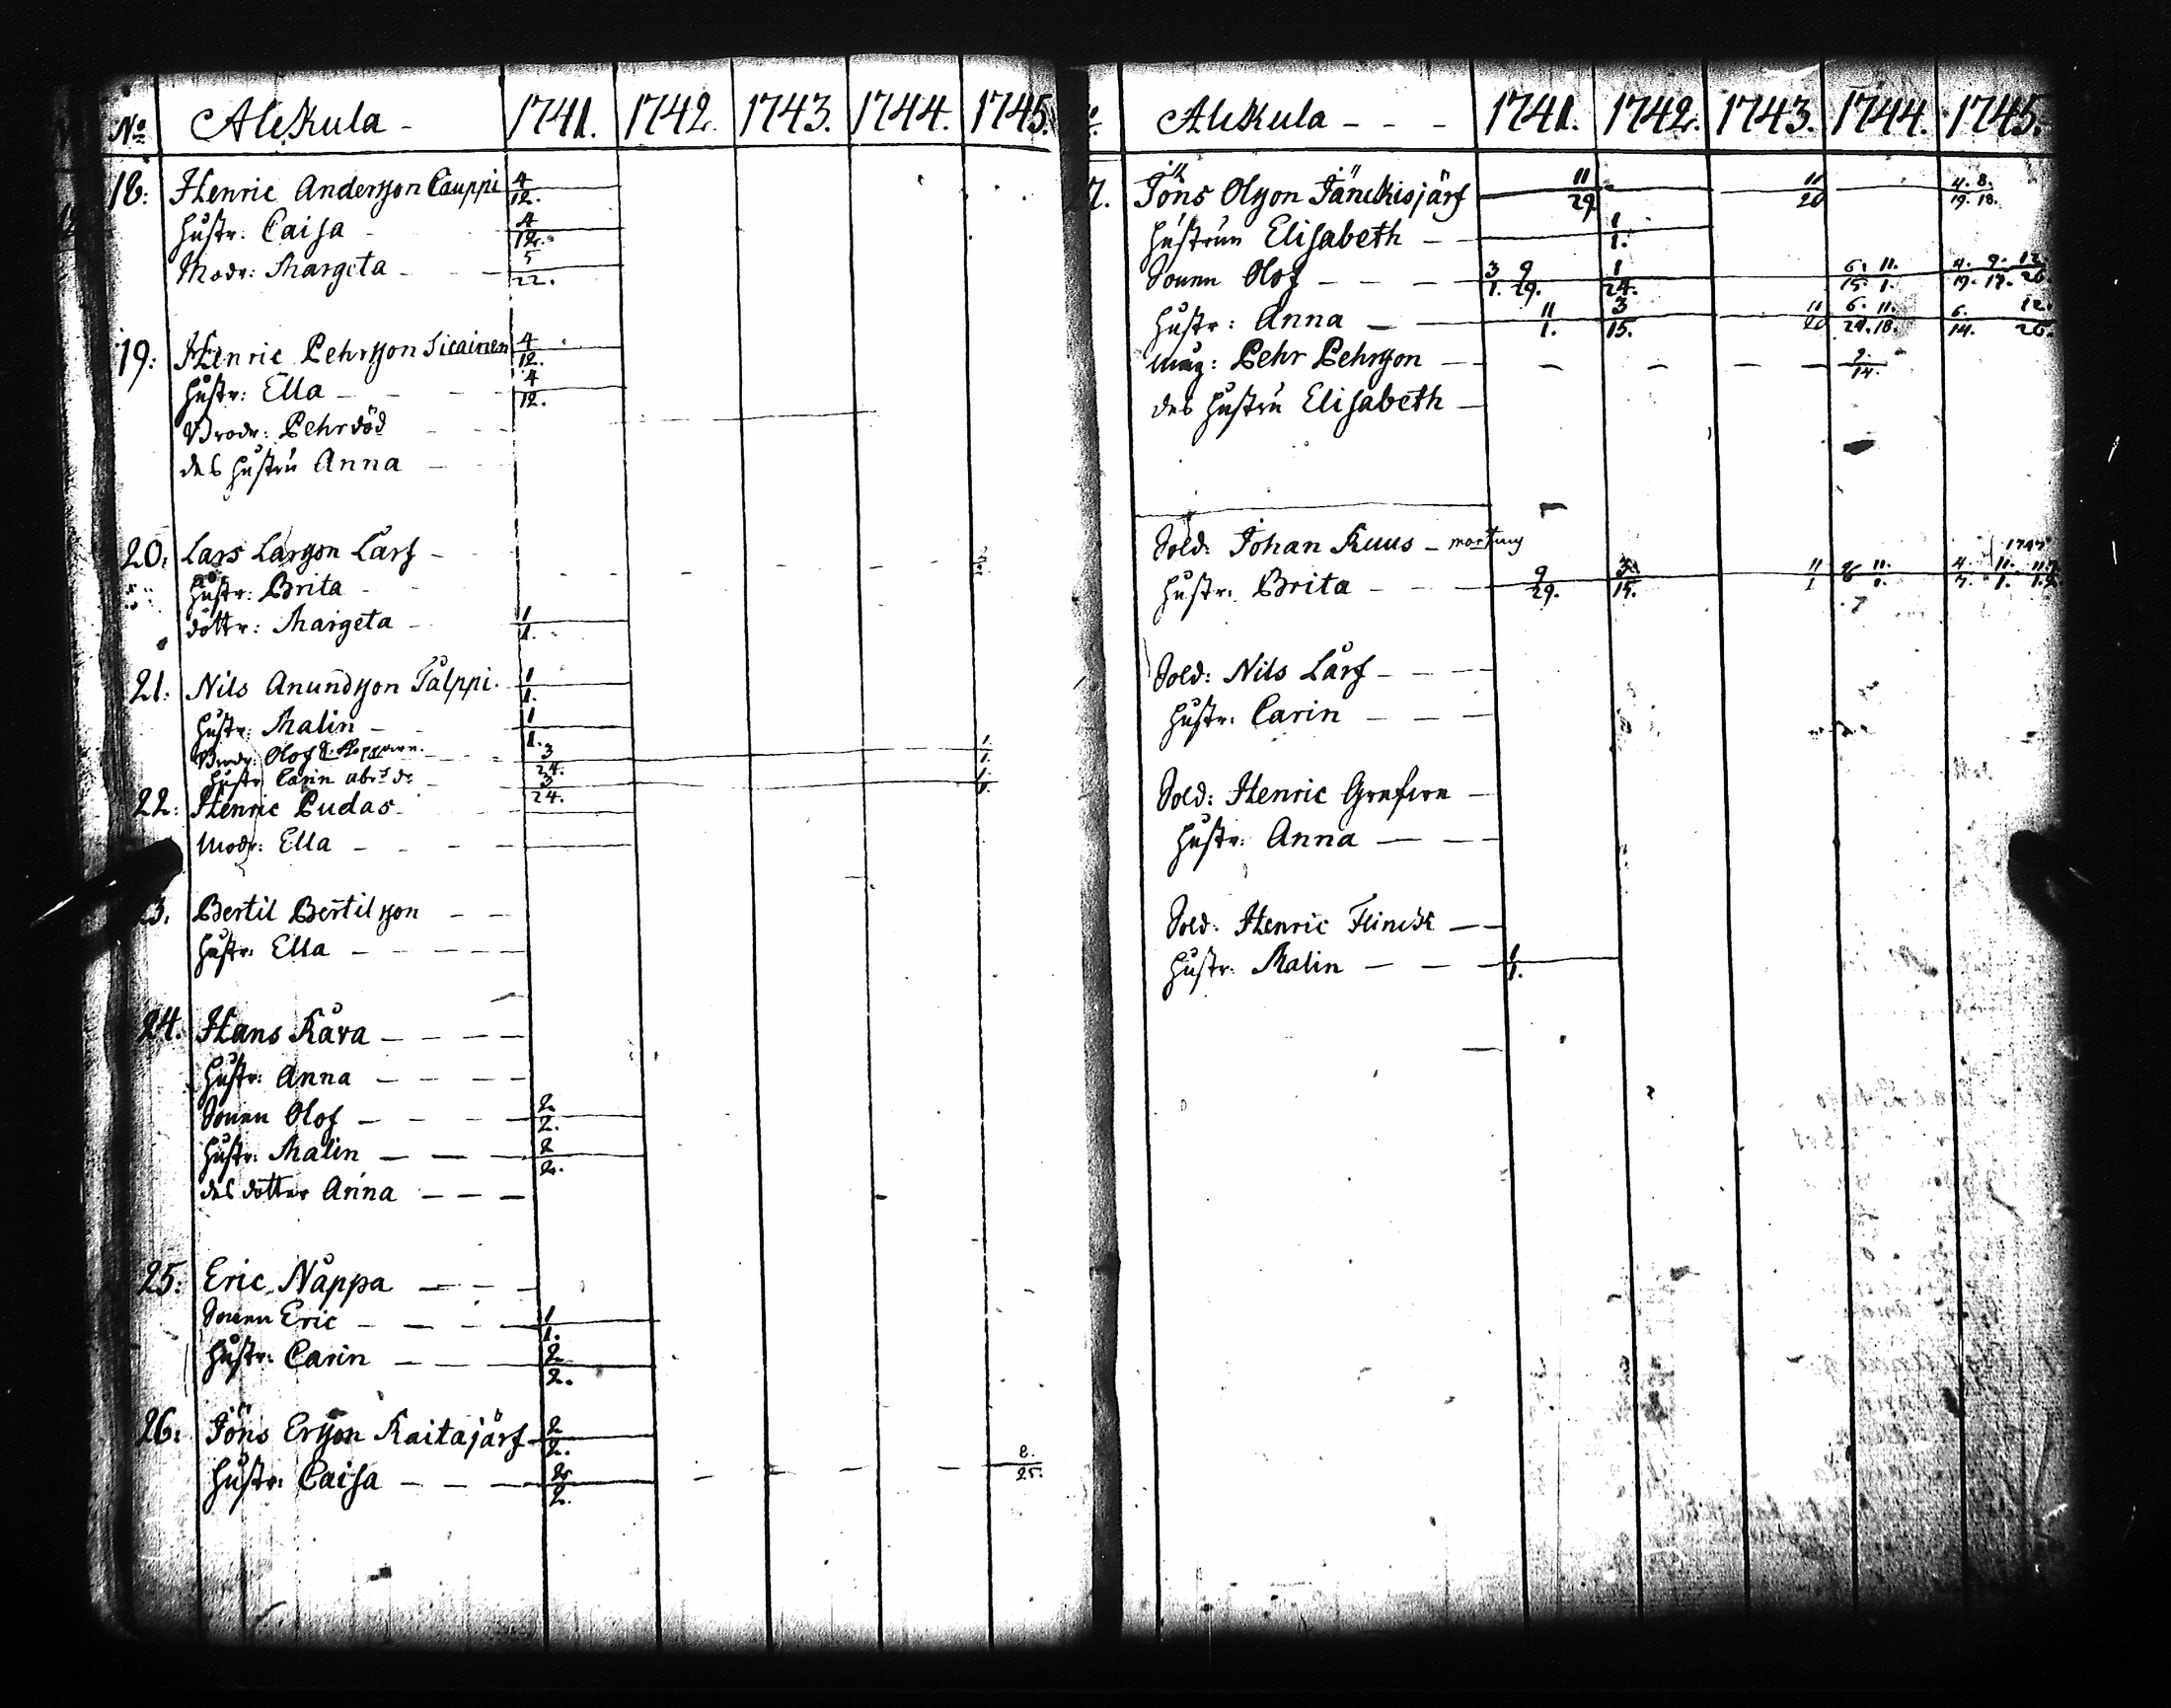 No Alekula - 1741. 1742. 1743. 1744. 1745.
18: Henric Andersson Cauppi 4/12.
hustr: Caisa 4/12.
Modr: Margeta 5/22.
19: Henric Pehrsson Sicainen 4/12.
hustr: Ella 4/12.
Brodr: Pehr död
des hustru Anna
20: Lars Larsson Larf
hustr: Brita
dottr: Margeta 1/1.
21: Nils Anundsson Palppi. 1/1.
hustr: Malin 1/1.
Brodr: Olof 3/24. 1/1.
hustr Carin 3/24. 1/1.
22: Henric Pudas
Modr: Ella
3. Bertil Bertilsson
hustr: Ella
24. Hans Kåva
hustr: Anna
Sonen Olof 2/2.
hustr: Malin 2/2.
des dotter Anna
25: Eric Nåppa
Sonen Eric 1/1.
hustr: Carin 2/2.
26: Jöns Ersson Kaitajärf 2/2.
hustr: Caisa 2/2. 8./25.
Alekula - - - 1741. 1742. 1743. 1744. 1745.
7. Jöns Olsson Jänckisjärf 11/29 11/20 4. 8./19. 18.
hustrun Elisabeth 1/1.
Sonen Olof 3 9/1. 29. 1/24. 6. 11./15. 1. 4. 9. 12./19. 17. 26
hustr: Anna 11/1. 3/15. 11/20 6. 11./24. 18. 6. 12./14. 26.
Måg: Pehr Pehrsson 2./14.
des hustru Elisabeth
Sold: Johan Kuus
hustr: Brita 9/29. 3/15. 11/1
Sold: Nils Larf
hustr: Carin
Sold: Henric Grefwe
hustr: Anna
Sold: Henric Flinck
hustr: Malin 1/1.